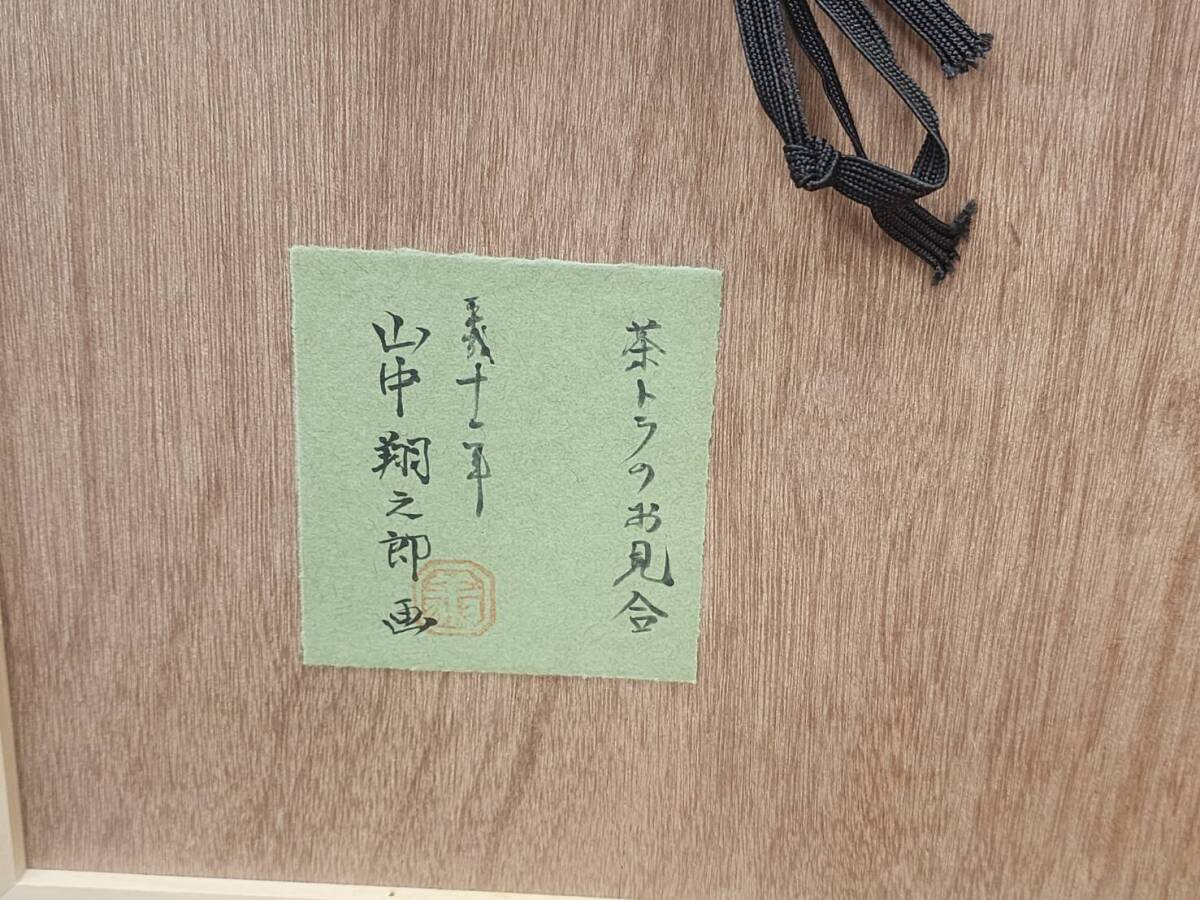 茶トラのお見合
十一年
山中翔之郎画